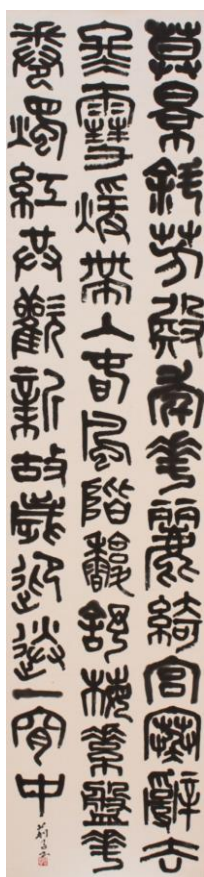 莫景斜芳殿年華麗綺宮寒辭去
冬雪煖帶入春風階馥舒梅素盤花
卷燭紅共歡新故歲迎送一宵中